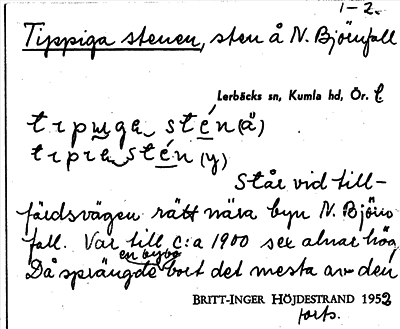 1-2.
Tippiga stenen, sten å N. Björnfall
Lerbäcks sn, Kumla hd, Ör. l
stén (ä)
stén (y)
Står vid till-
färdsvägen rätt nära byn N. Björn
fall. Var till c:a 1900 sex alnar hög,
en bybo
Då sprängde bort det mesta av den
BRITT-INGER HÖJDESTRAND 1952
forts.